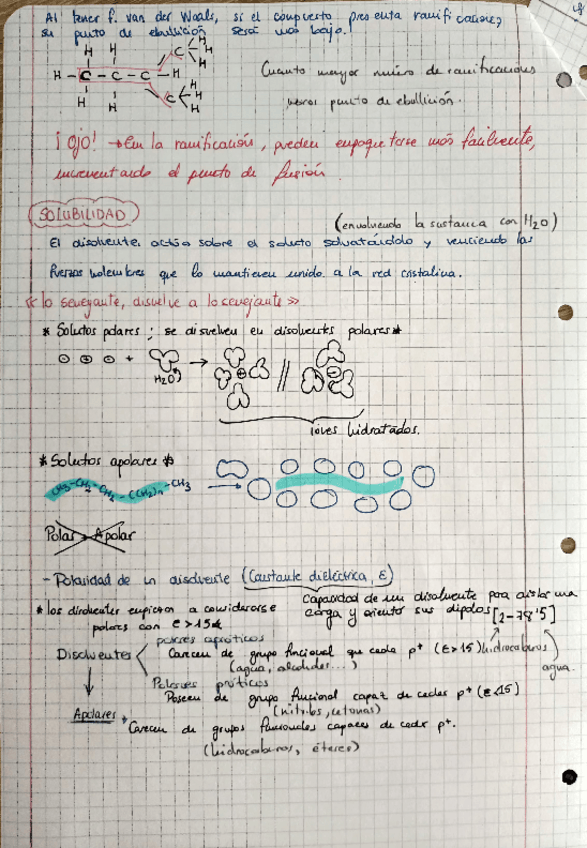 Al tener f. van der Waals, si el compuesto presenta ramificaciones,
su punto de ebullición será más bajo.!
H H C H H H
H - C - C - C - H
H H C H H H
Cuanto mayor número de ramificaciones
menos punto de ebullición.
¡ojo! → En la ramificación, pueden empaquetarse más facilmente,
incrementando el punto de fusión
SOLUBILIDAD
(envolviendo la sustancia con H2O)
El disolvente actúa sobre el soluto solvatándolo y venciendo las
fuerzas que lo mantienen unido a la red cristalina.
<< lo semejante, disuelve a lo semejante >>
* Solutos polares: se disuelven en disolventes polares *
⊖ ⊕ ⊖ + H2O → ⊕ // ⊖
iones hidratados.
* Solutos apolares *
CH3-CH2-CH2-(CH2)n-CH3 →
Polar + Apolar
- Polaridad de un disolvente (Constante dieléctrica, ε)
Capacidad de un disolvente para aislar una
carga y sus dipolos [2-78'5]
* los disolventes empiezan a considerarse
polares con ε > 15 *
hidrocarburos
agua.
Disolventes
polares apróticos
Carecen de grupo funcional que ceda p+ (ε>15)
(agua, alcoholes...)
Polares próticos
Poseen de grupo funcional capaz de ceder p+ (ε<15)
(nitrilos, cetonas)
Apolares → Carecen de grupos funcionales capaces de ceder p+.
(hidrocarburos, éteres)